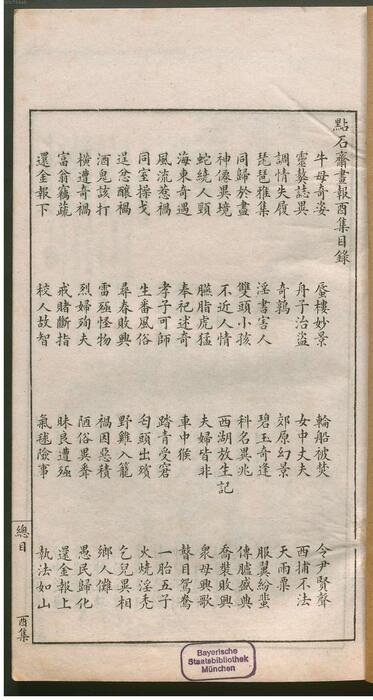 點石齋畫報酉集目錄
牛母奇姿 蜃樓妙景 輪船被焚 令尹賢聲
靈鼇誌異 舟子治盜 女中丈夫 西捕不法
調情失履 奇鶉 郊原幻景 天雨粟
琵琶雅集 淫書害人 碧玉奇逢 服翼紛蜚
同歸於盡 雙頭小孩 科名異兆 傳臚盛典
神僊異境 不近人情 西湖放生記 喬裝敗興
蛇繞人頸 臙脂虎猛 夫婦皆非 衆母興歌
海東奇遇 奉祀述奇 車中猴 瞽目鴛鴦
風流惹禍 孝子可師 踏青受窘 一胎五子
同室操戈 生番風俗 匄頭出殯 火燒淫禿
逞忿釀禍 尋春敗興 野雞入籠 乞兒異相
酒鬼該打 雷殛怪物 禍因惡積 鄉人儺
橫遭奇禍 烈婦殉夫 陋俗異 愚民歸化
富翁竊蔬 戒賭斷指 昧良遭殛 還金報上
還金報下 校人故智 氣毬險事 執法如山
總目 酉集
Bayerische
Staatsbibliothek
München